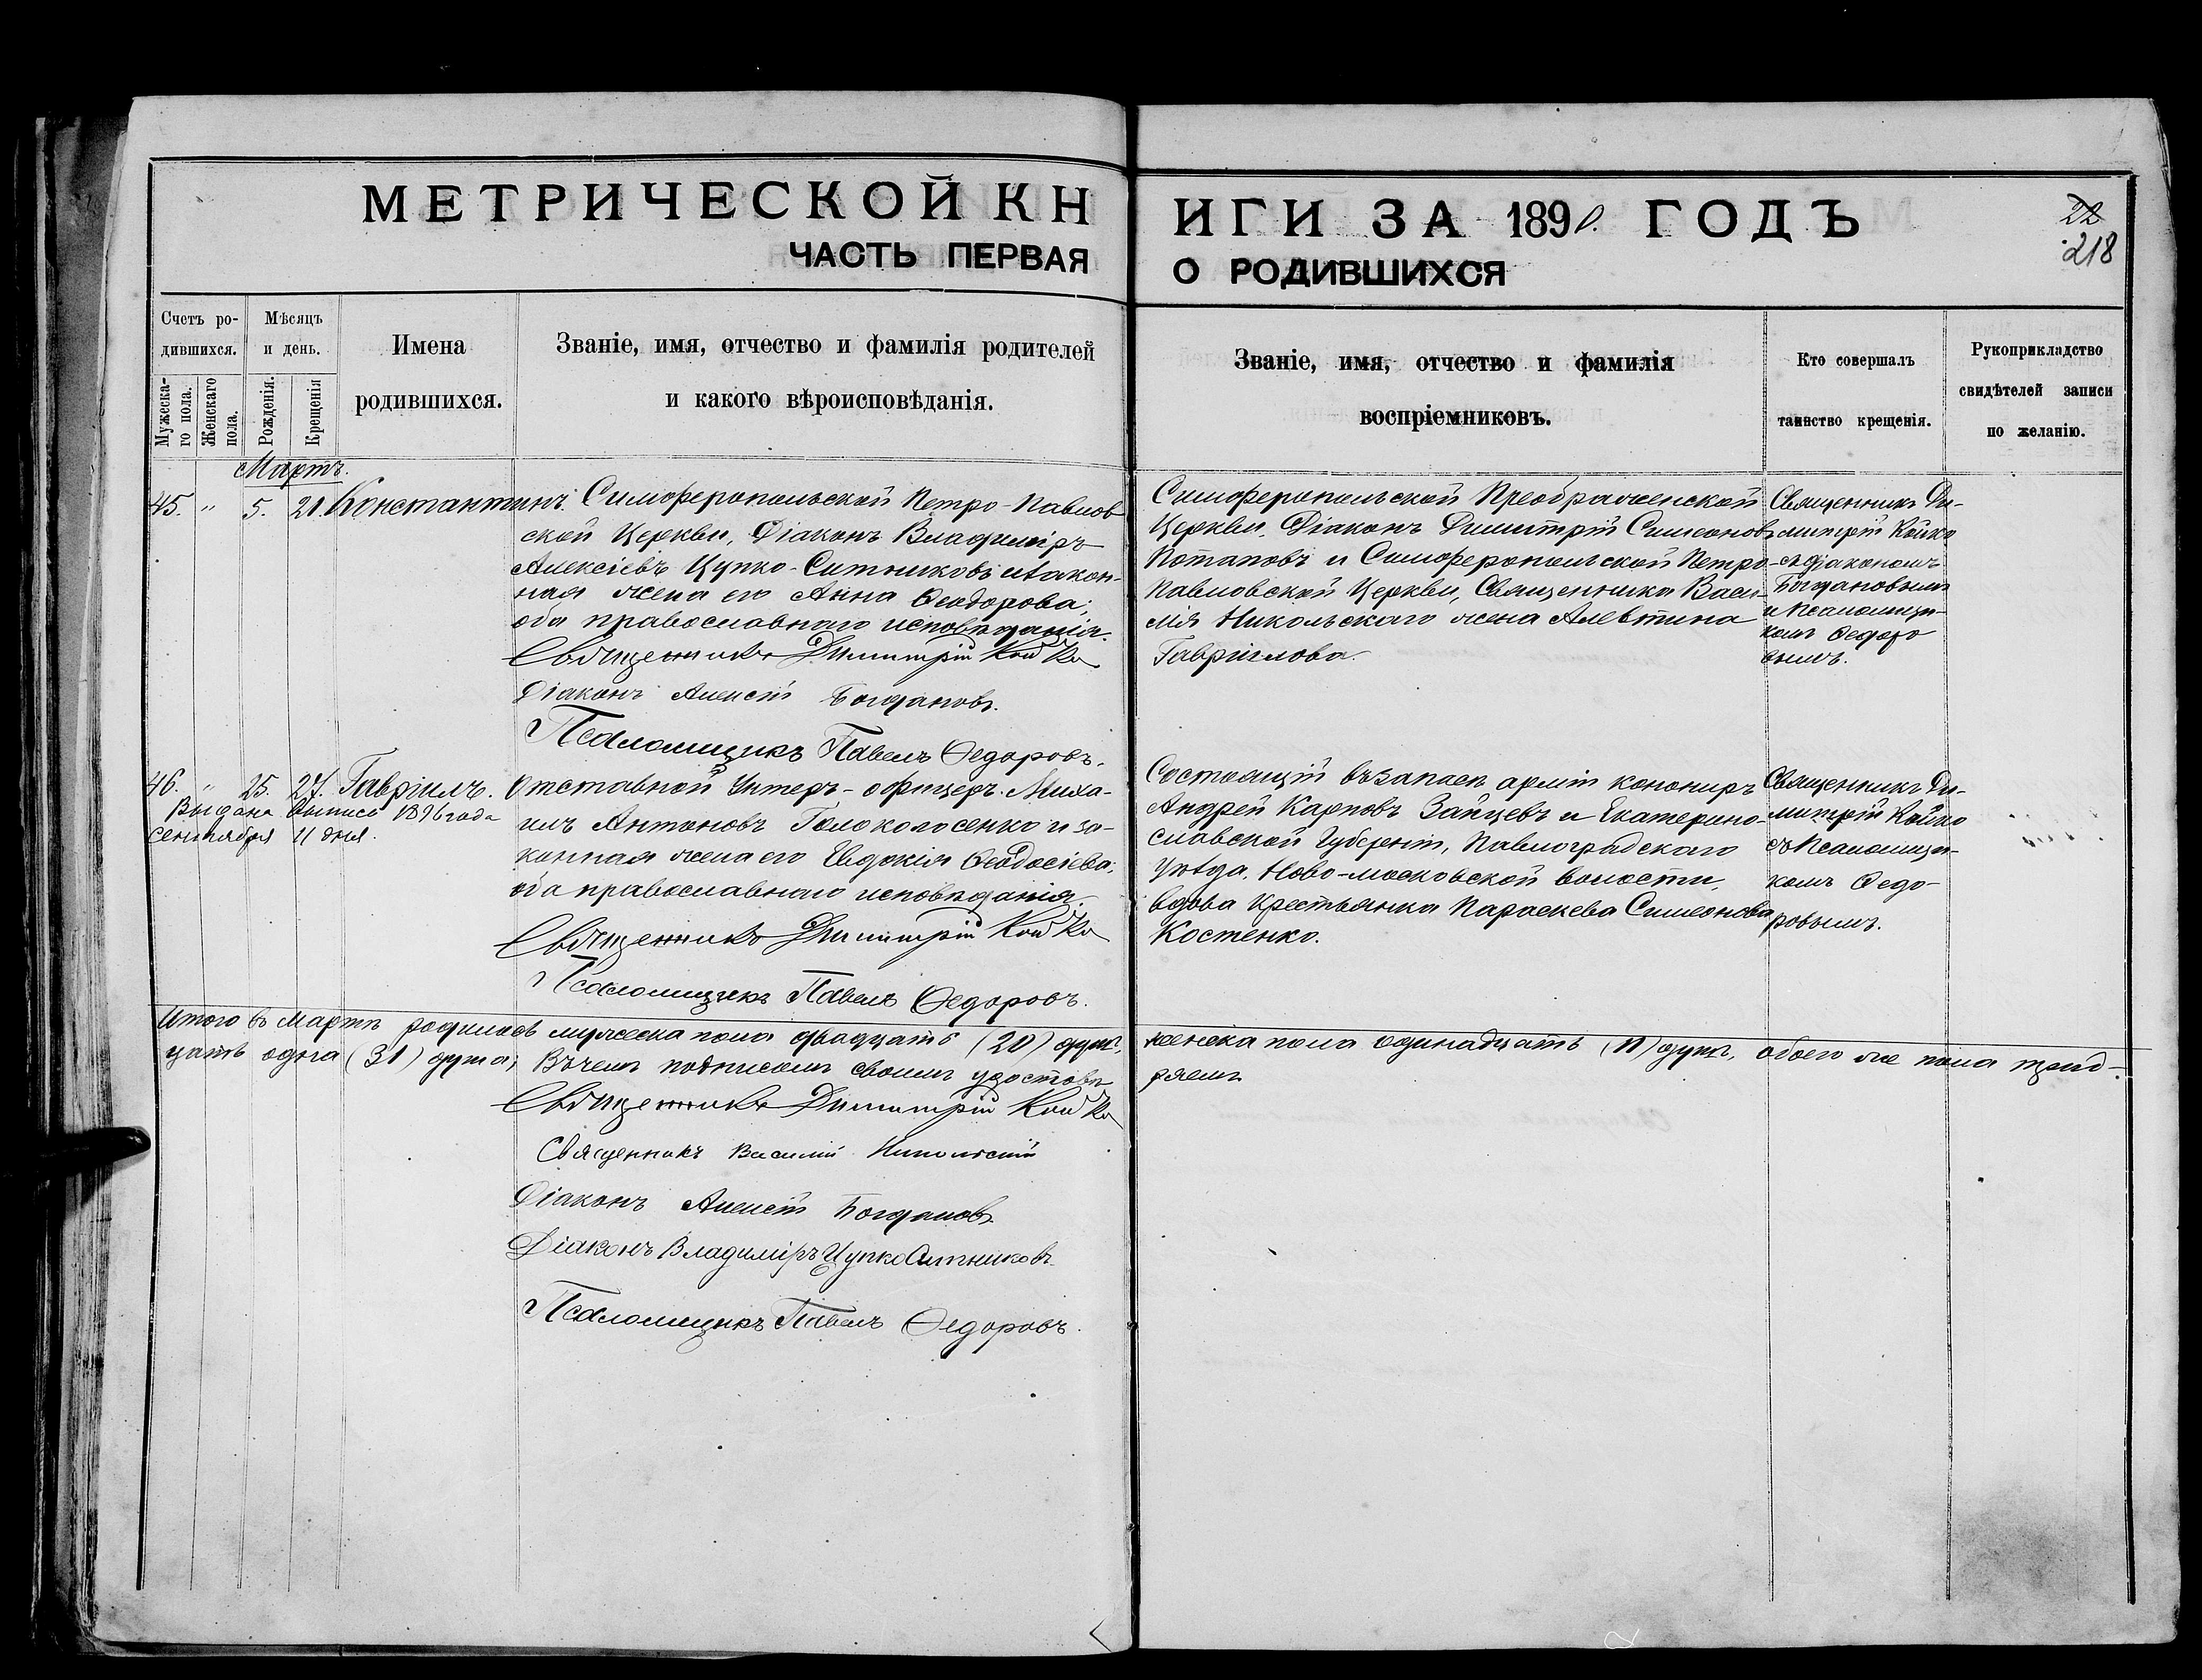 МЕТРИЧЕСКОЙ КНИГИ ЗА 1890. ГОДЪ
ЧАСТЬ ПЕРВАЯ О РОДИВШИХСЯ
22
218
Счетъ ро-
дившихся.
Мужеска-
го пола.
Женскаго
пола.
Мѣсяцъ
и день.
Рожденія.
Крещенія
Имена
родившихся.
Званіе, имя, отчество и фамилія родителей
и какого вѣроисповѣданія.
Званіе, имя, отчество и фамилія
воспріемниковъ.
Кто совершалъ
таинство крещенія.
Рукоприкладство
свидѣтелей записи
по желанію.
Мартъ.
45. " 5. 21. Константинъ.
Симферопольской Петро-Павлов
ской Церкви, Діаконъ Владиміръ
Алексіевъ Цупко-Ситниковъ и закон-
ная жена его Анна Ѳеодорова;
оба православнаго исповѣданія.
Священникъ Димитрій Койко
Діаконъ Алексій Богдановъ.
Псаломщикъ Павелъ Ѳедоровъ.
Симферопольской Преображенской
Церкви, Діаконъ Димитрій Симеоновъ
Потаповъ и Симферопольской Петро-
Павловской Церкви, Священника Васи-
лія Никольскаго жена Алевтина
Гавріилова.
Священникъ Ди-
митрій Койко
съ Діакономъ
Богдановымъ
и Псаломщи-
комъ Ѳедоро
вымъ.
46. " 25. 27. Гавріилъ.
Выдана выпись 1896 года
сентября 11 дня.
Отставной Унтеръ-офицеръ Миха-
илъ Антоновъ Голоколосенко и за-
конная жена его Евдокія Ѳеодосіева;
оба православнаго исповѣданія.
Священникъ Димитрій Койко
Псаломщикъ Павелъ Ѳедоровъ.
Состоящій въ запасѣ арміи канониръ
Андрей Карповъ Зайцевъ и Екатерино-
славской Губерніи, Павлоградскаго
уѣзда, Ново-московской волости,
вдова крестьянка Параскева Симеонова
Костенко.
Священникъ Ди-
митрій Койко
съ Псаломщи-
комъ Ѳедо-
ровымъ.
Итого въ Мартѣ родилось мужеска пола двадцать (20) душъ, женска пола одинадцать (11) душъ, обоего же пола трид-
цать одна (31) душа; Въ чемъ подписомъ своимъ удостовѣ
ряемъ
Священникъ Димитрій Койко
Священникъ Василій Никольскій
Діаконъ Алексій Богдановъ
Діаконъ Владиміръ Цупко Ситниковъ.
Псаломщикъ Павелъ Ѳедоровъ.